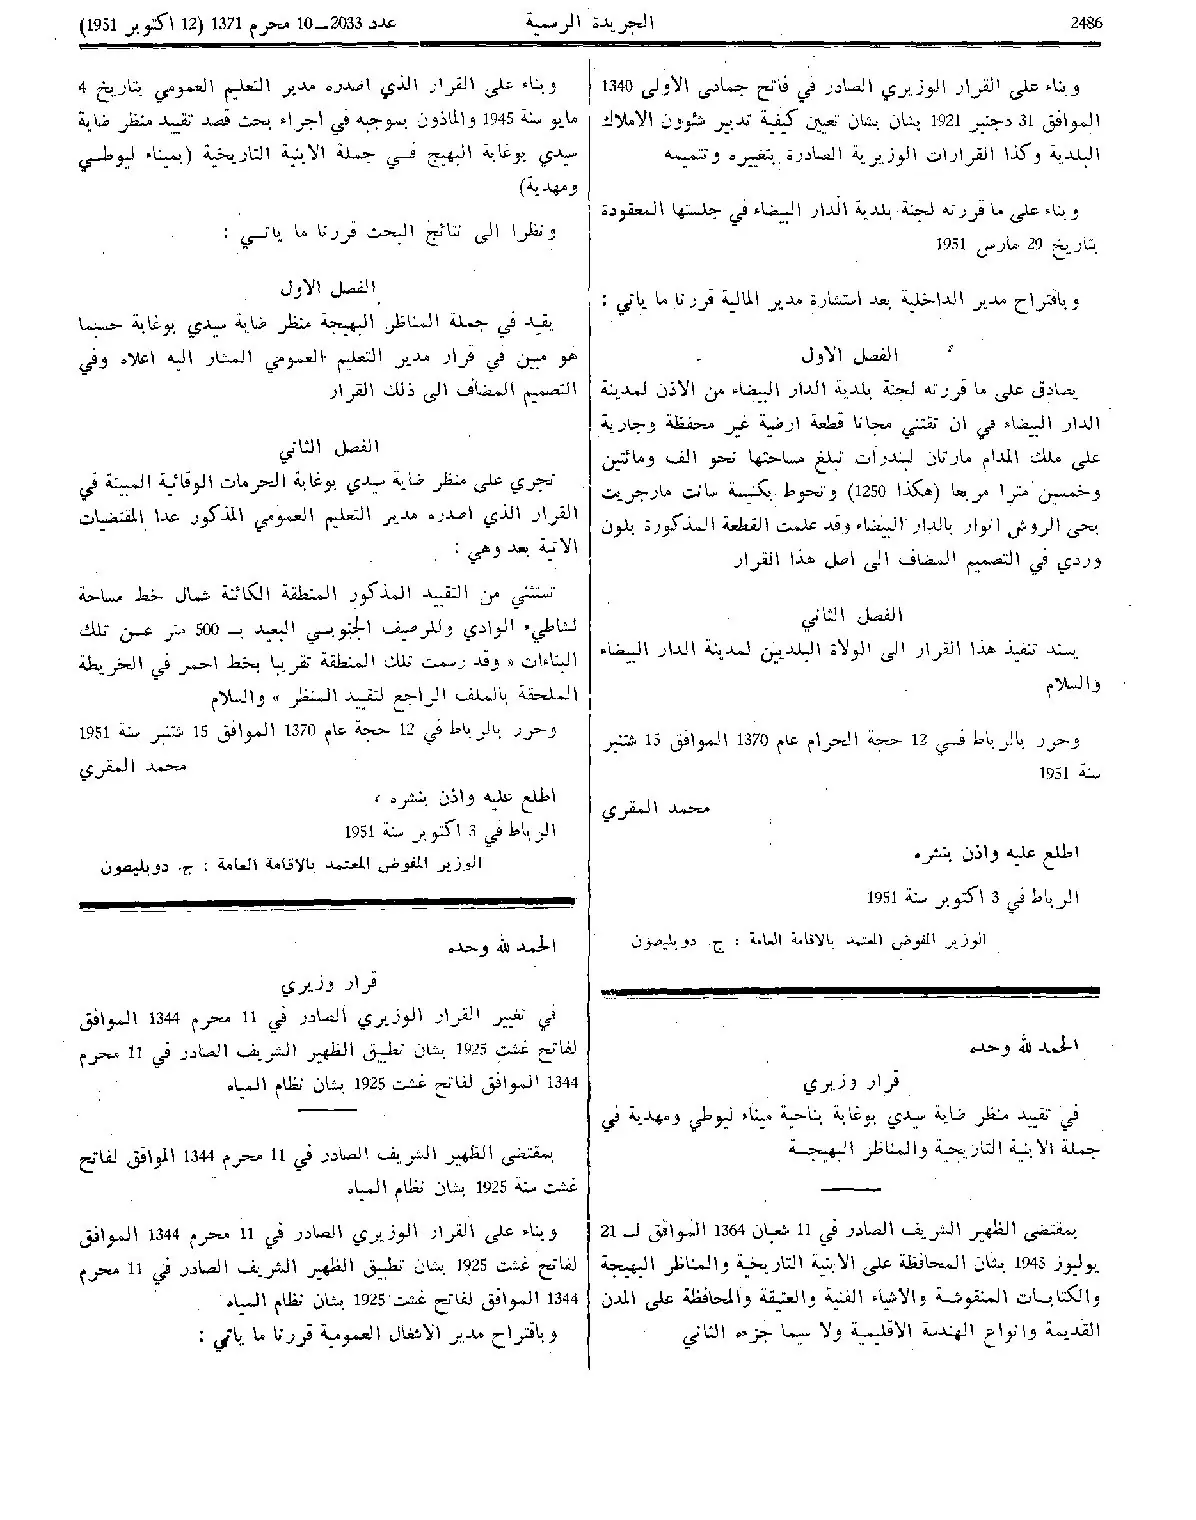 2486
الجريدة الرسمية
عدد 2033 — 10 محرم 1371 (12 اكتوبر 1951)
وبناء على القرار الوزيري الصادر في فاتح جمادى الاولى 1340
الموافق 31 دجنبر 1921 بشان بشان تعيين كيفية تدبير شؤون الاملاك
البلدية وكذا القرارات الوزيرية الصادرة بتغييره وتتميمه
وبناء على ما قررته لجنة بلدية الدار البيضاء في جلستها المعقودة
بتاريخ 29 مارس 1951
وباقتراح مدير الداخلية بعد استشارة مدير المالية قررنا ما ياتي :
الفصل الاول
يصادق على ما قررته لجنة بلدية الدار البيضاء من الاذن لمدينة
الدار البيضاء في ان تقتني مجانا قطعة ارضية غير محفظة وجارية
على ملك المدام مارتان لبندرات تبلغ مساحتها نحو الف ومائتين
وخمسين مترا مربعا (هكذا 1250) وتحوط بكنيسة سانت مارجريت
بحى الروش انوار بالدار البيضاء وقد علمت القطعة المذكورة بلون
وردي في التصميم المضاف الى اصل هذا القرار
الفصل الثاني
يسند تنفيذ هذا القرار الى الولاة البلديين لمدينة الدار البيضاء
والسلام
وحرر بالرباط فـي 12 حجة الحرام عام 1370 الموافق 15 شتنبر
سنة 1951
محمد المقري
اطلع عليه واذن بنشره
الرباط في 3 اكتوبر سنة 1951
الوزير المفوض المعتمد بالاقامة العامة : ج. دوبليصون
الحمد لله وحده
قرار وزيري
في تقييد منظر ضاية سيدي بوغابة بناحية ميناء ليوطي ومهدية في
جملة الابنية التاريخية والمناظر البهيجـة
بمقتضى الظهير الشريف الصادر في 11 شعبان 1364 الموافق لـ 21
يوليوز 1945 بشان المحافظة على الابنية التاريخية والمناظر البهيجة
والكتابـات المنقوشـة والاشياء الفنية والعتيقة والمحافظة على المدن
القديمة وانواع الهندسة الاقليمية ولا سيما جزءه الثاني
وبناء على القرار الذي اصدره مدير التعليم العمومي بتاريخ 4
مايو سنة 1945 والماذون بموجبه في اجراء بحث قصد تقييد منظر ضاية
سيدي بوغابة البهيج فـي جملة الابنية التاريخية (بميناء ليوطـي
ومهدية)
ونظرا الى نتائج البحث قررنا ما ياتـي :
الفصل الاول
يقيد في جملة المناظر البهيجة منظر ضاية سيدي بوغابة حسبما
هو مبين في قرار مدير التعليم العمومي المشار اليه اعلاه وفي
التصميم المضاف الى ذلك القرار
الفصل الثاني
تجري على منظر ضاية سيدي بوغابة الحرمات الوقائية المبينة في
القرار الذي اصدره مدير التعليم العمومي المذكور عدا المقتضيات
الاتية بعد وهي :
تستثنى من التقييد المذكور المنطقة الكائنة شمال خط مساحة
لشاطيء الوادي وللرصيف الجنوبـي البعيد بـ 500 متر عـن تلك
البناءات « وقد رسمت تلك المنطقة تقريبا بخط احمر في الخريطة
الملحقة بالملف الراجع لتقييد المنظر » والسلام
وحرر بالرباط في 12 حجة عام 1370 الموافق 15 شتنبر سنة 1951
محمد المقري
اطلع عليه واذن بنشره ،
الرباط في 3 اكتوبر سنة 1951
الوزير المفوض المعتمد بالاقامة العامة : ج. دوبليصون
الحمد لله وحده
قرار وزيري
في تغيير القرار الوزيري الصادر في 11 محرم 1344 الموافق
لفاتح غشت 1925 بشان تطبيق الظهير الشريف الصادر في 11 محرم
1344 الموافق لفاتح غشت 1925 بشان نظام المياه
بمقتضى الظهير الشريف الصادر في 11 محرم 1344 الموافق لفاتح
غشت سنة 1925 بشان نظام المياه
وبناء على القرار الوزيري الصادر في 11 محرم 1344 الموافق
لفاتح غشت 1925 بشان تطبيق الظهير الشريف الصادر في 11 محرم
1344 الموافق لفاتح غشت 1925 بشان نظام المياه
وباقتراح مدير الاشغال العمومية قررنا ما ياتي :